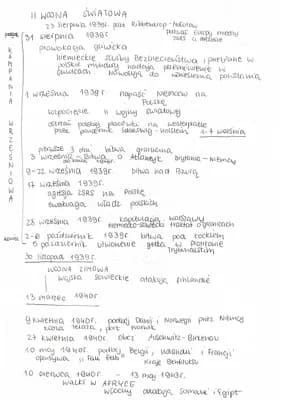 II WOJNA ŚWIATOWA
23 sierpnia 1939r. pakt Ribbentrop-Mołotow
podział Europy między ZSRS a III Rzeszę
początek
31 sierpnia 1939r
prowokacja gliwicka
niemieckie służby Bezpieczeństwa przebrane w
polskie mundury nadają przemówienie w
Gliwicach. Nawołują do wzniesienia powstania
KAMPANIA WRZEŚNIOWA
1 września 1939r napaść Niemców na
Polskę
rozpoczęcie II wojny światowej
ostrzał polskiej placówki na Westerplatte
przez pancernik Schleswig-Holstein 1-7 września
pierwsze 3 dni bitwa graniczna
3 września - Bitwa o Atlantyk brytania - Niemcy
9-22 września 1939r. bitwa nad Bzurą
17 września 1939r.
agresja ZSRS na Polskę
ewakuacja władz polskich
28 września 1939r kapitulacja Warszawy
niemiecko-sowiecki traktat o granicach
koniec
2-6 październik 1939r bitwa pod Kockiem
8 październik utworzenie getta w Piotrkowie
Trybunalskim
30 listopad 1939r.
WOJNA ZIMOWA
wojska sowieckie atakują Finlandię
13 marzec 1940r
9 kwietnia 1940r. podbój Danii i Norwegii przez Niemcy
ruda żelaza, port Narwik
27 kwietnia 1940r. obóz Auschwitz-Birkenau
10 maj 1940r. podbój Belgii, Holandii i Francji
operacja "Fall Gelb" kraje Beneluksu
10 czerwca 1940r - 13 maj 1943r.
WALKI W AFRYCE
Włochy atakują Somalię i Egipt